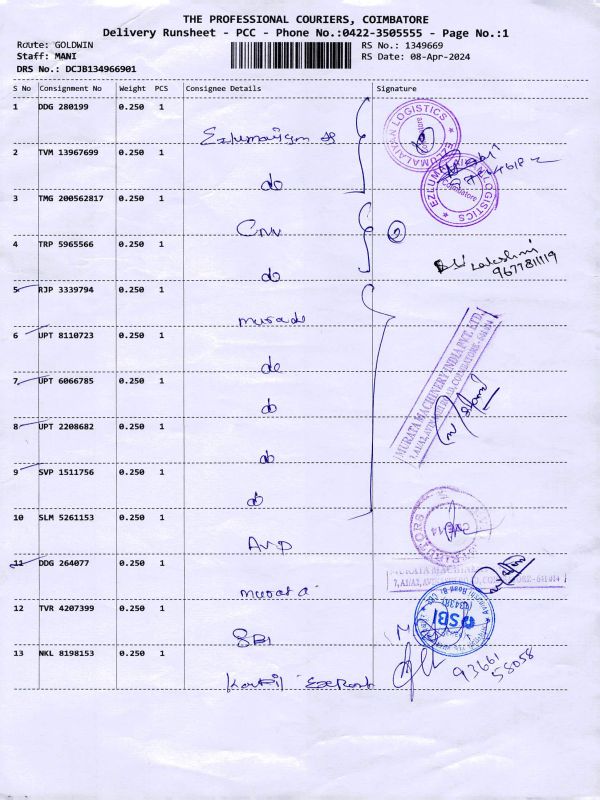 THE PROFESSIONAL COURIERS, COIMBATORE
Delivery Runsheet - PCC - Phone No.:0422-3505555 - Page No.:1
Route: GOLDWIN
RS No.: 1349669
Staff: MANI
RS Date: 08-Apr-2024
DRS No.: DCJB134966901
S No Consignment No Weight PCS Consignee Details Signature
1 DDG 280199 0.250 1
EZLUMALAIYAN LOGISTICS
2 TVM 13967699 0.250 1
do
EZLUMALAIYAN LOGISTICS
Coimbatore
3 TMG 200562817 0.250 1
Cnn
4 TRP 5965566 0.250 1
do
Lakshmi
9677811119
5 RJP 3339794 0.250 1
6 UPT 8110723 0.250 1
do
MURATA MACHINERY INDIA PVT. LTD.
7 UPT 6066785 0.250 1
do
8 UPT 2208682 0.250 1
do
9 SVP 1511756 0.250 1
do
10 SLM 5261153 0.250 1
11 DDG 264077 0.250 1
murata
MURATA MACHINE
COIMBATORE - 641014
12 TVR 4207399 0.250 1
SBI
SBI
13 NKL 8198153 0.250 1
93661
58058